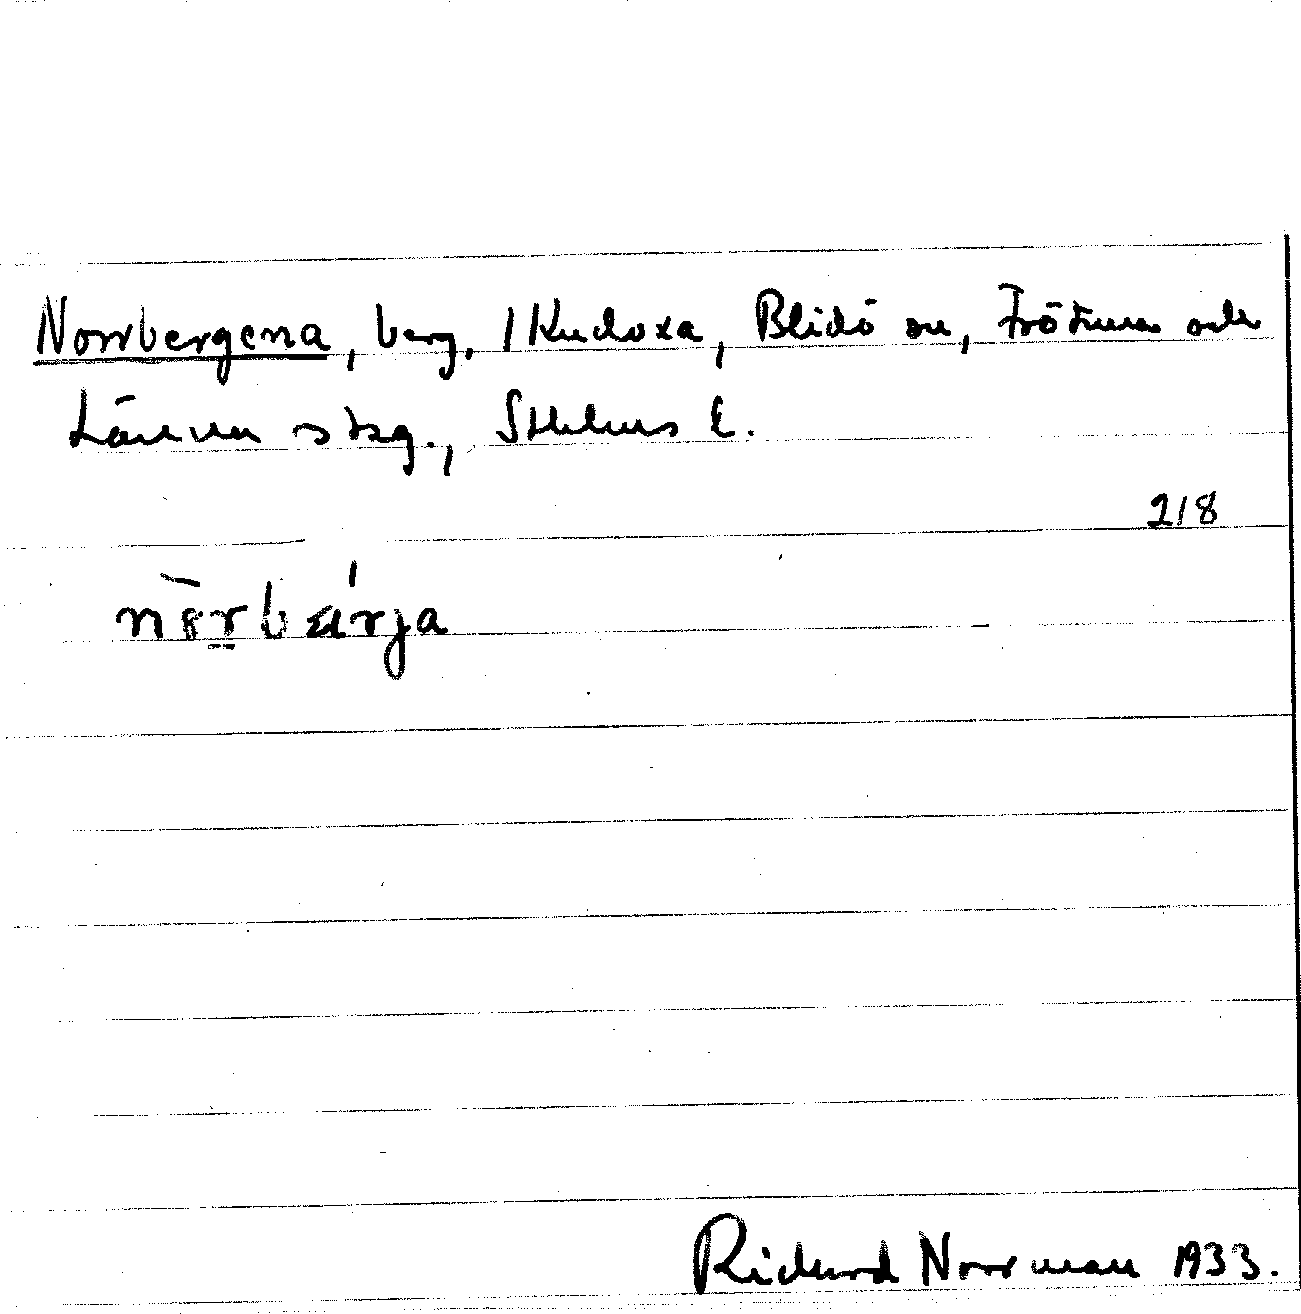 Norrbergena, berg, 1 Kudoxa, Blidö sn, Frötuna och
Länna skg., Sthlms l.
218
Rickard Norrman 1933.